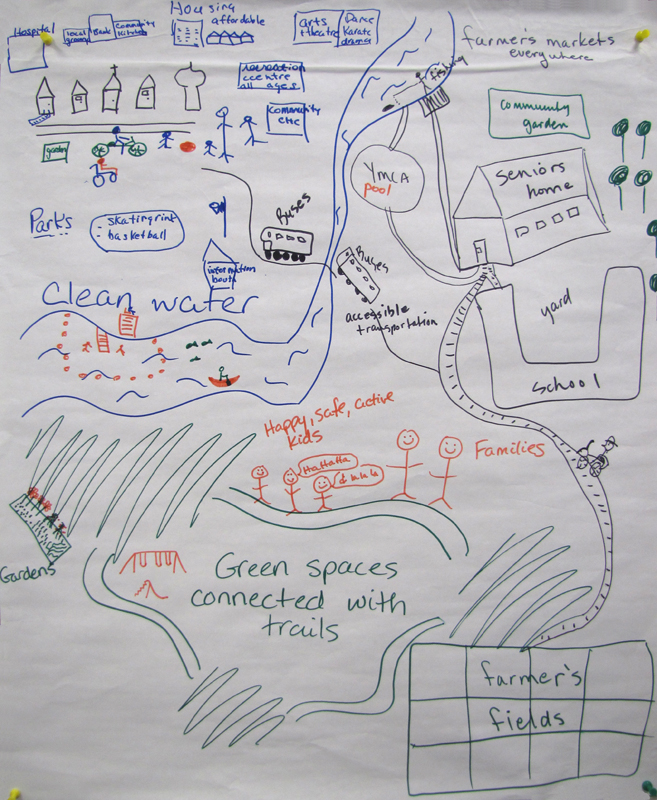 Hospital
local
grocery
Bank
Community
Kitchen
Housing
affordable
arts
theatre
Dance
Karate
drama
farmer's markets
everywhere
fishing
recreation
centre
all ages
community
garden
YMCA
pool
seniors
home
garden
Parks
- skating rink
- basketball
Buses
Buses
accessible
transportation
information
booth
yard
school
Clean water
Happy, safe, active
kids
Families
Hahaha
Gardens
Green spaces
connected with
trails
farmer's
fields